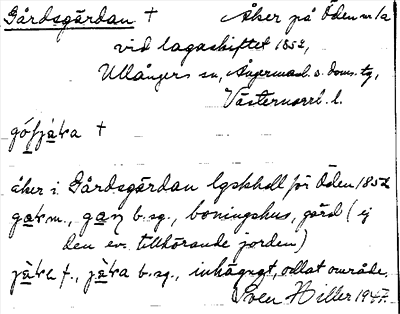 Gårdsgärdan † Åker på Öden n:1a
vid lagaskiftet 1852,
Ullångers sn, Ångermanl. s. doms. tg,
Västernorrl. l.
†
åker i Gårdsgärdan lgskhdl för Öden 1852
gaṛ m., b. sg., boningshus, gård (ej
den ev. tillhörande jorden)
jäḱa f., jäḱa b. sg., inhägngt, odlat område.
Sven Hiller 1947.